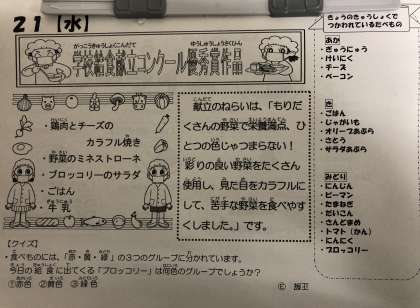 21【水】
がっこうきゅうしょくこんだて ゆうしゅうしょうさくひん
学校給食献立コンクール優秀賞作品
・鶏肉とチーズの
カラフル焼き
・野菜のミネストローネ
・ブロッコリーのサラダ
・ごはん
・牛乳
献立のねらいは、「もりだ
くさんの野菜で栄養満点、ひ
とつの色じゃつまらない!
彩りの良い野菜をたくさん
使用し、見た目をカラフルに
して、苦手な野菜を食べやす
くしました。」です。
【クイズ】
・食べものには、「赤・黄・緑」の3つのグループに分かれています。
今日の給食に出てくる「ブロッコリー」は何色のグループでしょうか?
①赤色 ②黄色 ③緑色
きょうのきゅうしょくで
つかわれているたべもの
あか
・ぎゅうにゅう
・けいにく
・チーズ
・ベーコン
き
・ごはん
・じゃがいも
・オリーブあぶら
・さとう
・サラダあぶら
みどり
・にんじん
・ピーマン
・たまねぎ
・だいこん
・さんどまめ
・トマト(かん)
・にんにく
・ブロッコリー